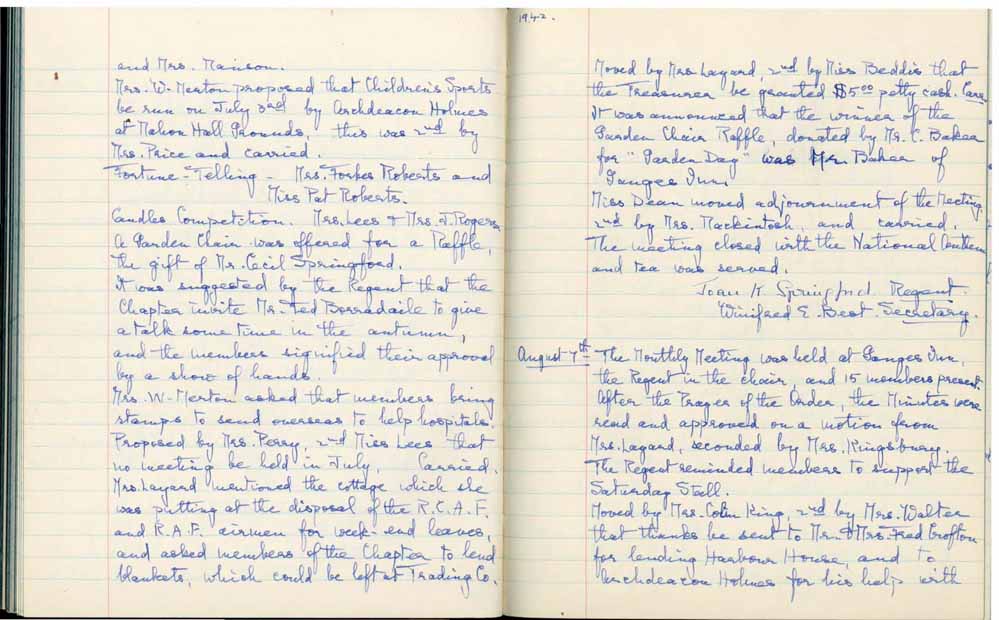 and Mrs. Manson.
Mrs. W-Merton proposed that Children's Sports
be run on July 3rd by Archdeacon Holmes
at Mahon Hall Grounds, this was 2nd by
Mrs. Price and carried.
Fortune-Telling - Mrs. Forbes Roberts and
Miss Pat Roberts.
Candles Competition. Mrs. Lees & Mrs. J. Rogers
A Garden Chair was offered for a Raffle,
the gift of Mr. Cecil Springford.
It was suggested by the Regent that the
Chapter invite Mr. Ted Borradaile to give
a talk some time in the autumn,
and the members signified their approval
by a show of hands.
Mrs. W-Merton asked that members bring
stamps to send overseas to help hospitals.
Proposed by Mrs. Perry, 2nd Miss Lees that
no meeting be held in July, Carried.
Mrs. Layard mentioned the cottage which she
was putting at the disposal of the R.C.A.F.
and R.A.F. airmen for week-end leaves,
and asked members of the Chapter to lend
blankets, which could be left at Trading Co.
1942.
Moved by Mrs Layard, 2nd by Miss Beddis that
the Treasurer be granted $5.00 petty cash. Carr
It was announced that the winner of the
Garden Chair Raffle, donated by Mr. C. Baker
for "Garden Day" was Mr. Baker of
Ganges Inn.
Miss Dean moved adjournment of the Meeting,
2nd by Mrs. Mackintosh, and carried.
The meeting closed with the National Anthem
and tea was served.
Joan K. Springford. Regent.
Winifred E. Best. Secretary.
August 7th- The Monthly Meeting was held at Ganges Inn,
the Regent in the chair, and 15 members present.
After the Prayer of the Order, the Minutes were
read and approved on a motion from
Mrs. Layard, seconded by Mrs. Kingsbury.
The Regent reminded members to support the
Saturday Stall.
Moved by Mrs. Colin King, 2nd by Mrs. Walter
that thanks be sent to Mr. & Mrs. Fred Crofton
for lending Harbour House, and to
Archdeacon Holmes for his help with